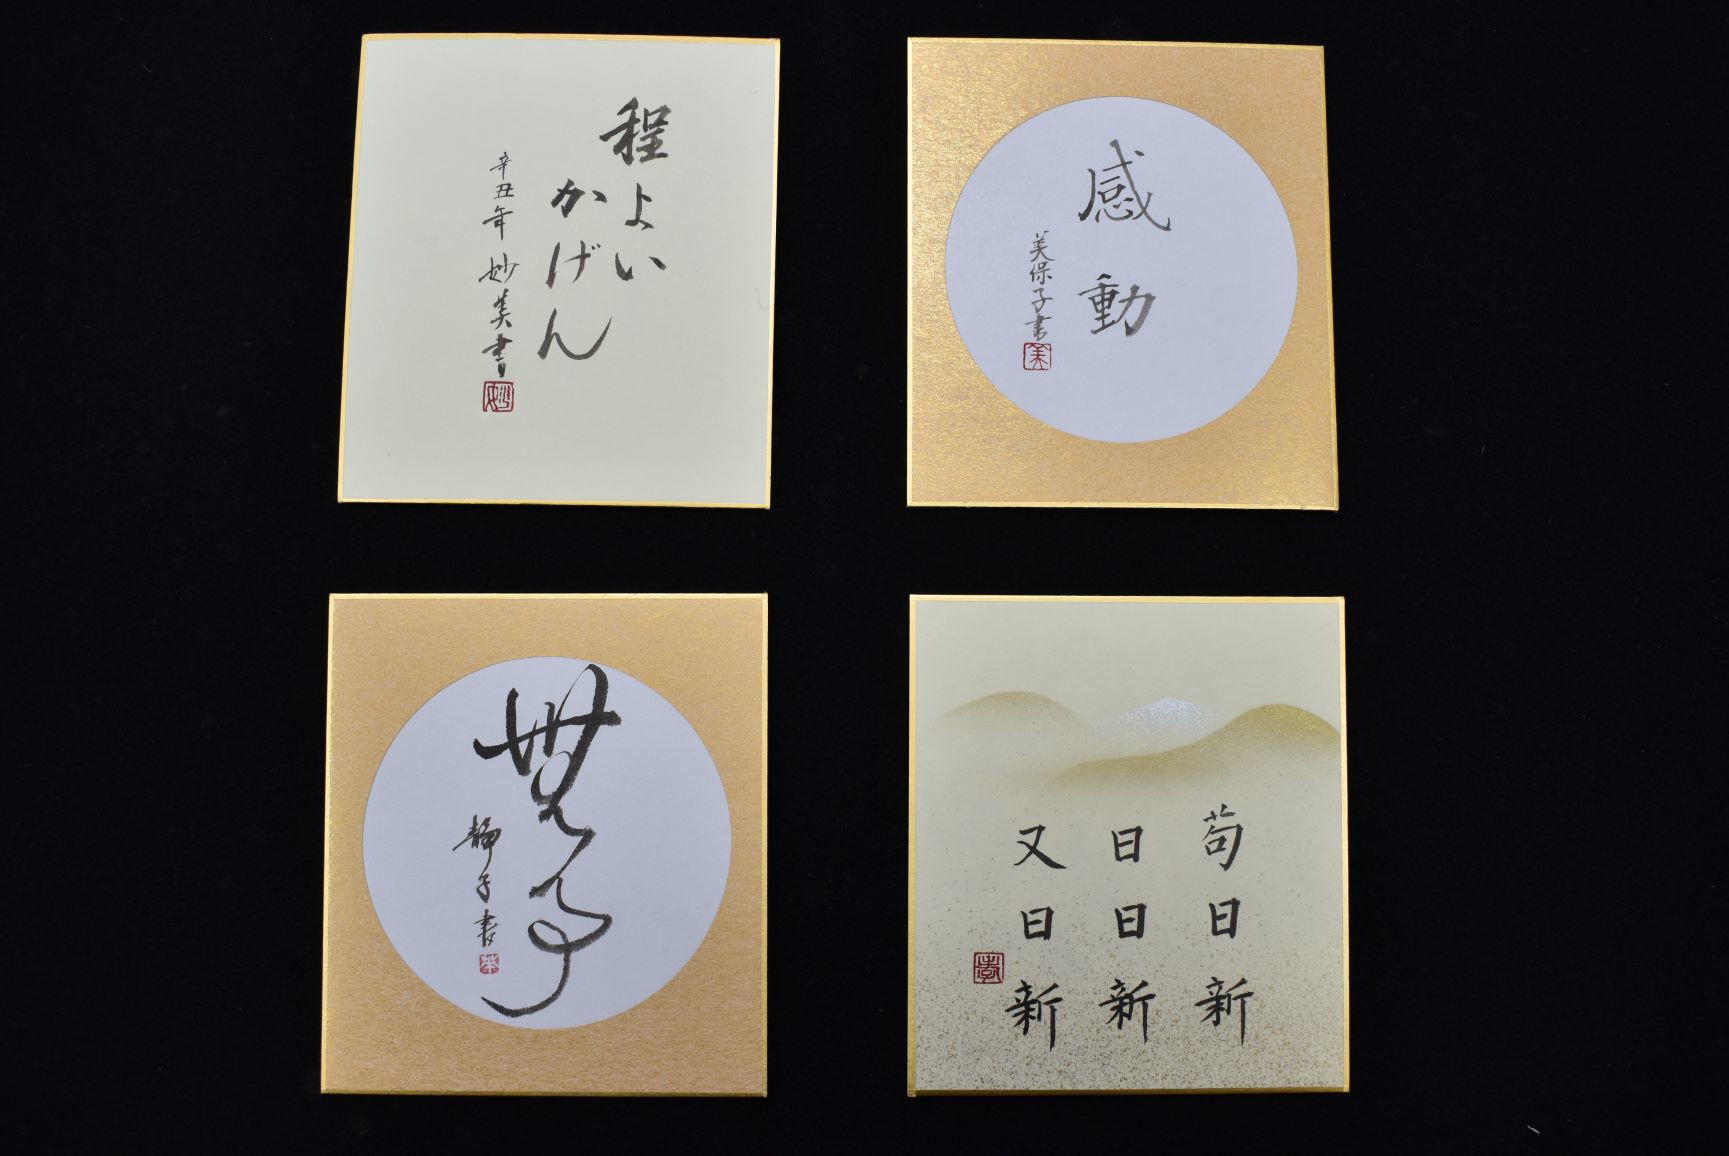 程よい
かげん
辛丑年 妙美書
妙
感動
美保子書
美
無事
静子書
苟日新
日日新
又日新